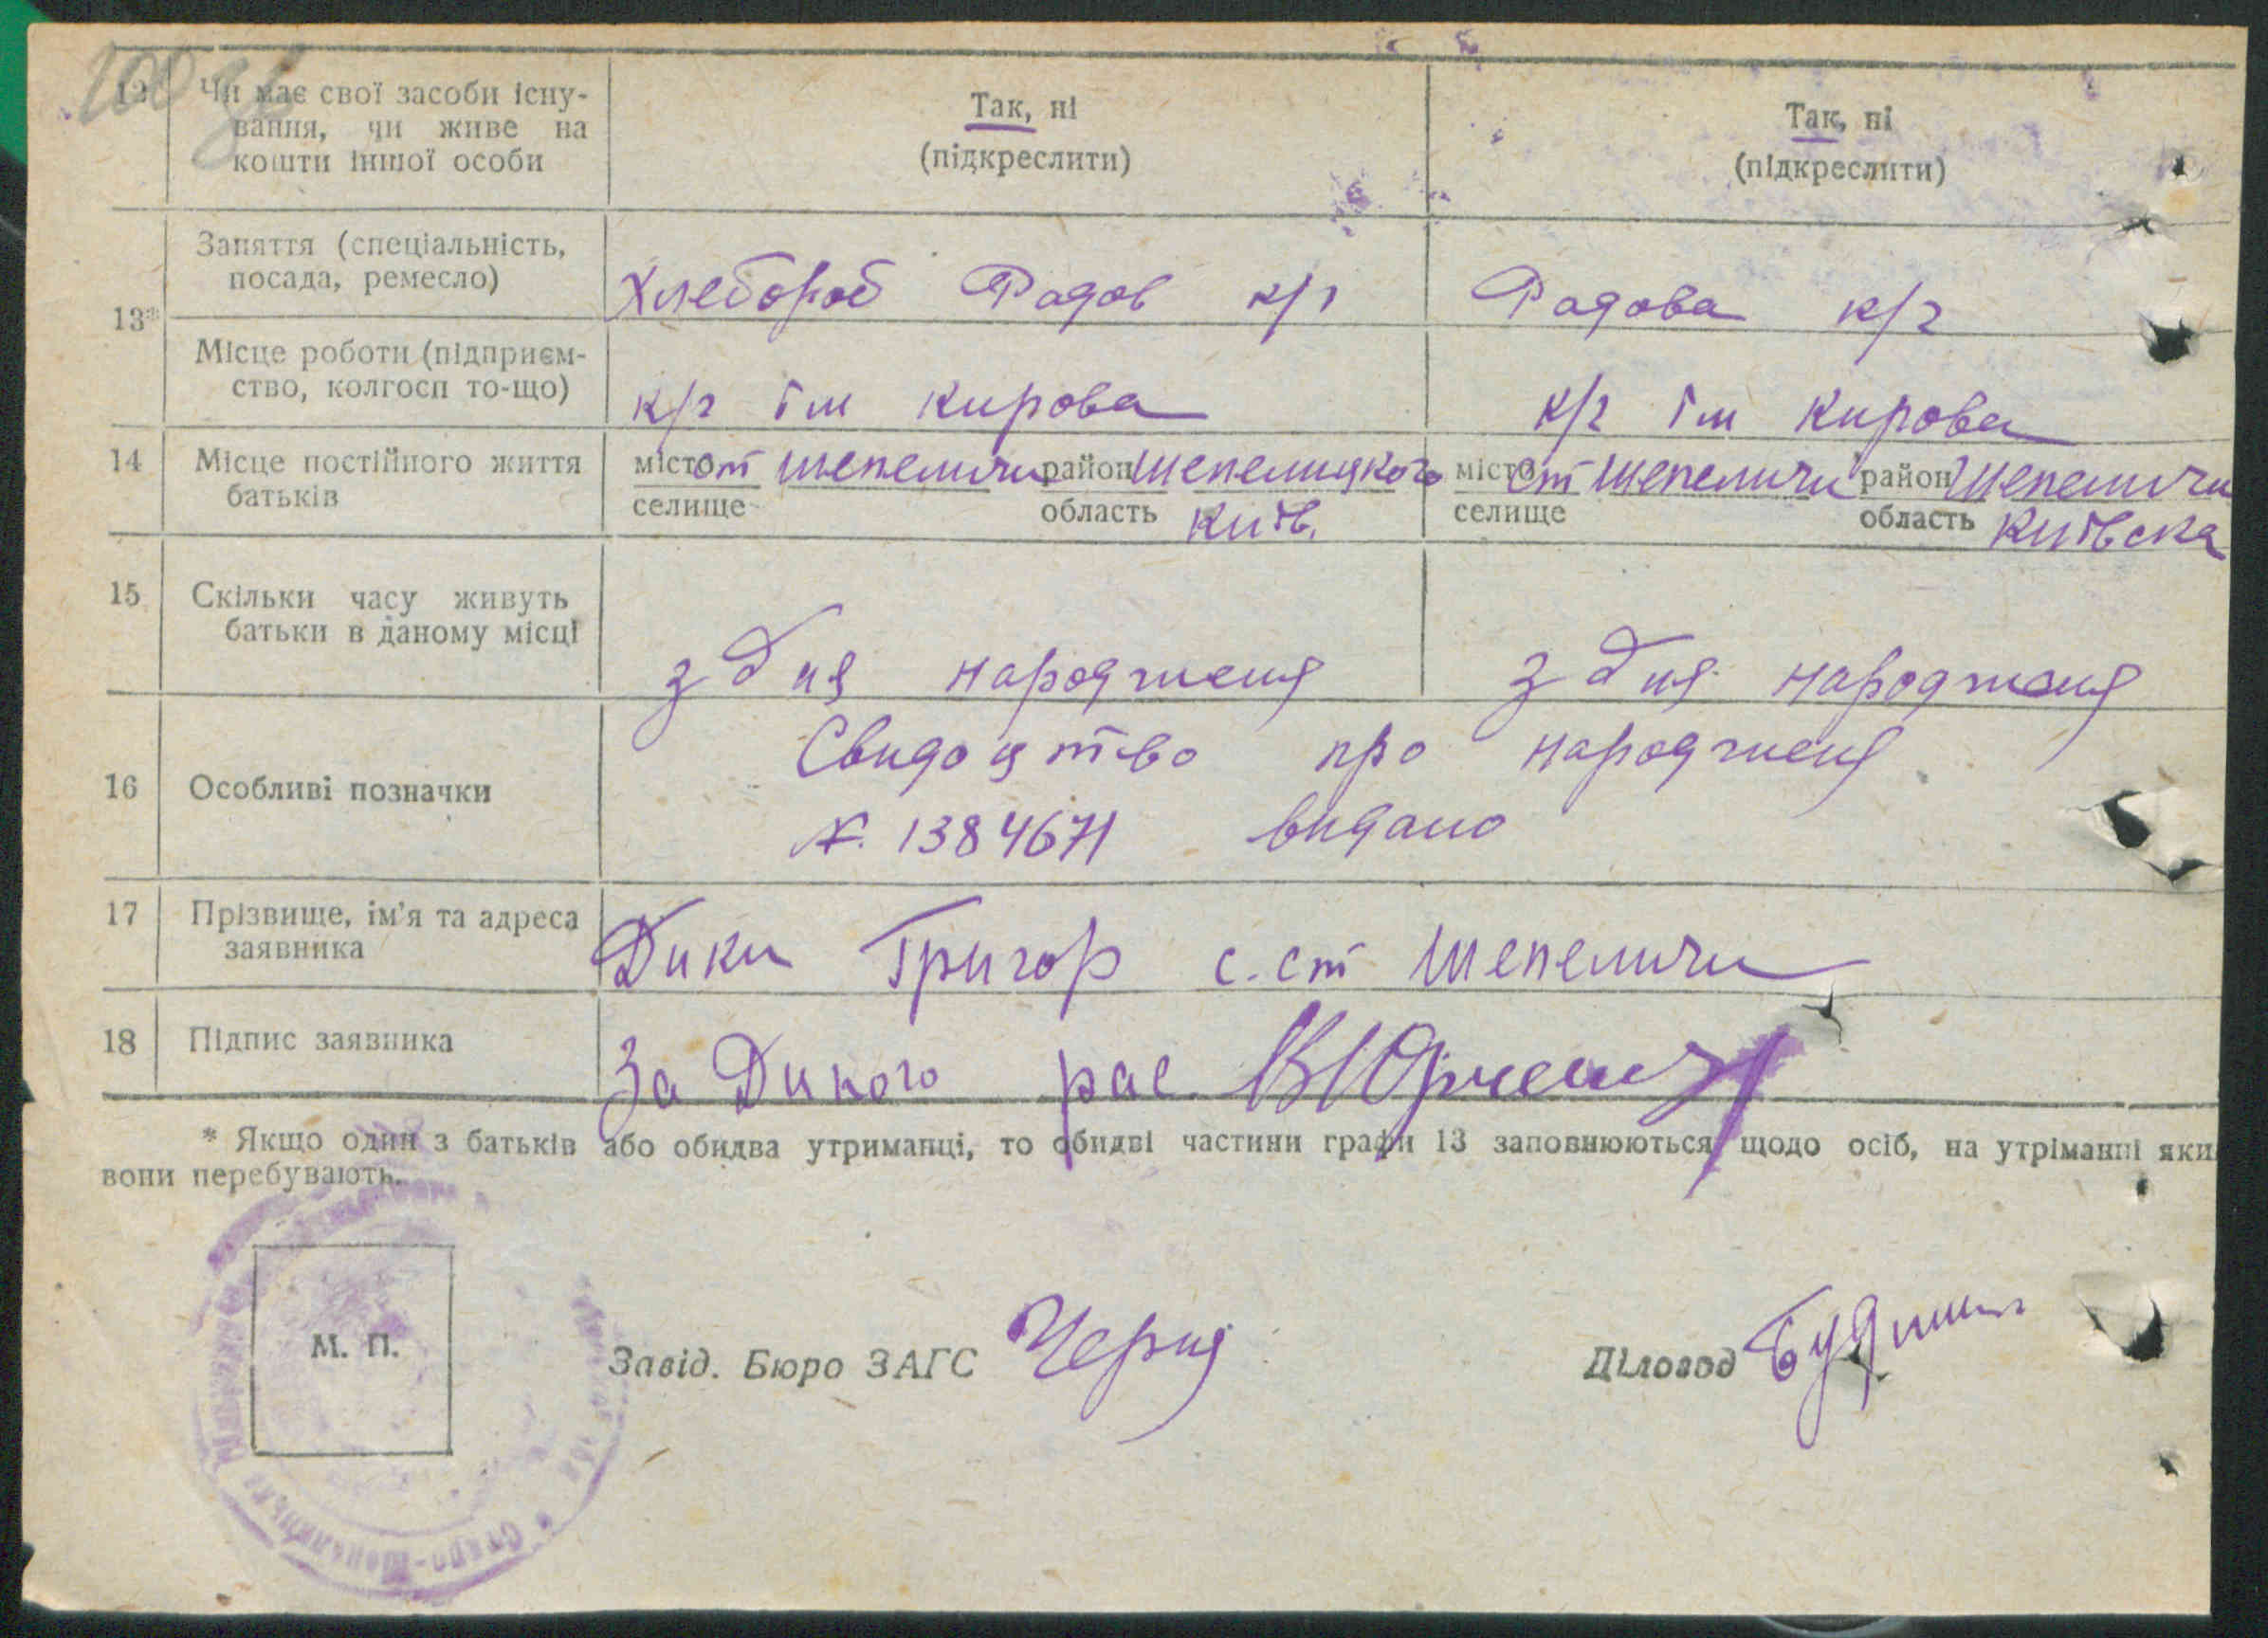 200
12 Чи має свої засоби існу- Так, ні Так, ні
вання, чи живе на (підкреслити) (підкреслити)
кошти іншої особи
13* Заняття (спеціальність,
посада, ремесло) Хлебороб Рядов к/г Рядова к/г
Місце роботи (підприєм-
ство, колгосп то-що) к/г їм Кирова к/г їм Кирова
14 Місце постійного життя місто ст Шепеличи район Шепелицкого місто ст Шепеличи район Шепеличи
батьків селище область Київ. селище область Київска
15 Скільки часу живуть
батьки в даному місці з дня народженя з дня народженя
16 Особливі позначки Свидоцтво про народженя
№. 1384671 видано
17 Прізвище, ім'я та адреса
заявника Дики Григор с. ст Шепеличи
18 Підпис заявника За Дикого рас.
* Якщо один з батьків або обидва утриманці, то обидві частини графи 13 заповнюються щодо осіб, на утріманні яки
вони перебувають.
М. П. Завід. Бюро ЗАГС Діловод
Старо-Шепелицька